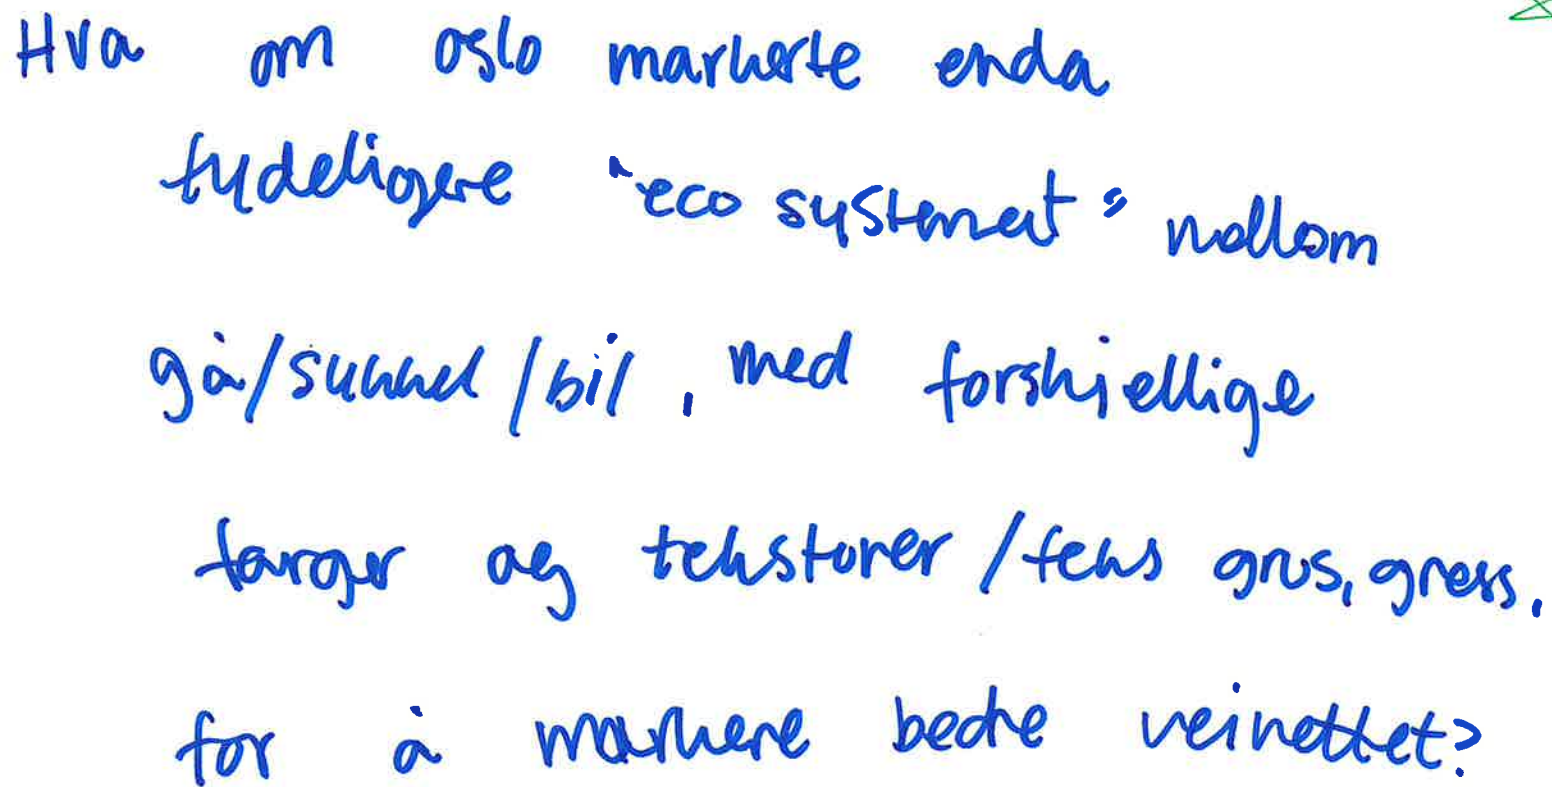 Hva om oslo markerte enda
tydeligere "eco systemet" mellom
gå/sykkel/bil, med forskjellige
farger og teksturer/feks grus, gress,
for å markere bedre veinettet?